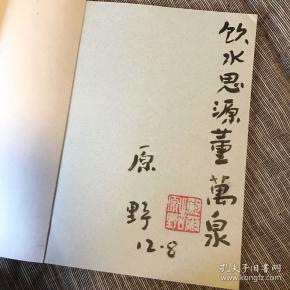 饮水思源董萬泉
原野
12.8
孔夫子旧书网